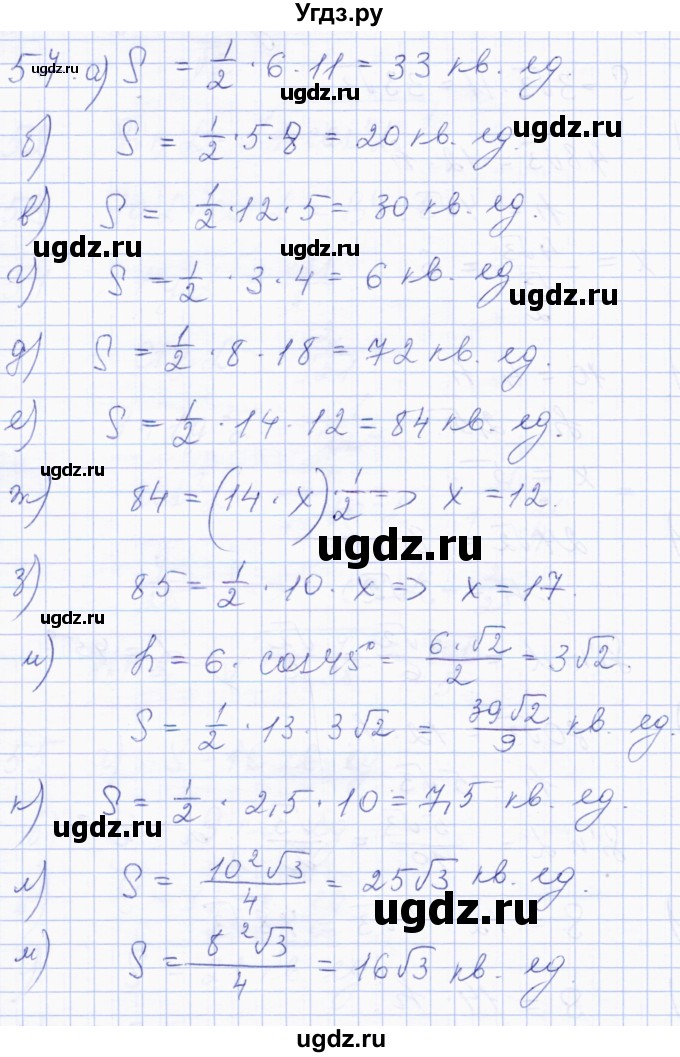 Угдз.ру
57. а) S = 1/2 · 6 · 11 = 33 кв. ед.
ugdz.ru
ugdz.ru
б) S = 1/2 · 5 · 8 = 20 кв. ед.
ugdz.ru
в) S = 1/2 · 12 · 5 = 30 кв. ед.
ugdz.ru
ugdz.ru
г) S = 1/2 · 3 · 4 = 6 кв. ед
ugdz.ru
д) S = 1/2 · 8 · 18 = 72 кв. ед.
е) S = 1/2 · 14 · 12 = 84 кв. ед.
ugdz.ru
ж) 84 = (14 · x) · 1/2 => x = 12.
ugdz.ru
з) 85 = 1/2 · 10 · x => x = 17.
ugdz.ru
и) h = 6 · cos 45° = 6·√2/2 = 3√2.
S = 1/2 · 13 · 3√2 = 39√2/9 кв. ед.
ugdz.ru
к) S = 1/2 · 2,5 · 10 = 7,5 кв. ед.
ugdz.ru
л) S = 10²√3/4 = 25√3 кв. ед.
ugdz.ru
м) S = 8²√3/4 = 16√3 кв. ед.
ugdz.ru
ugdz.ru